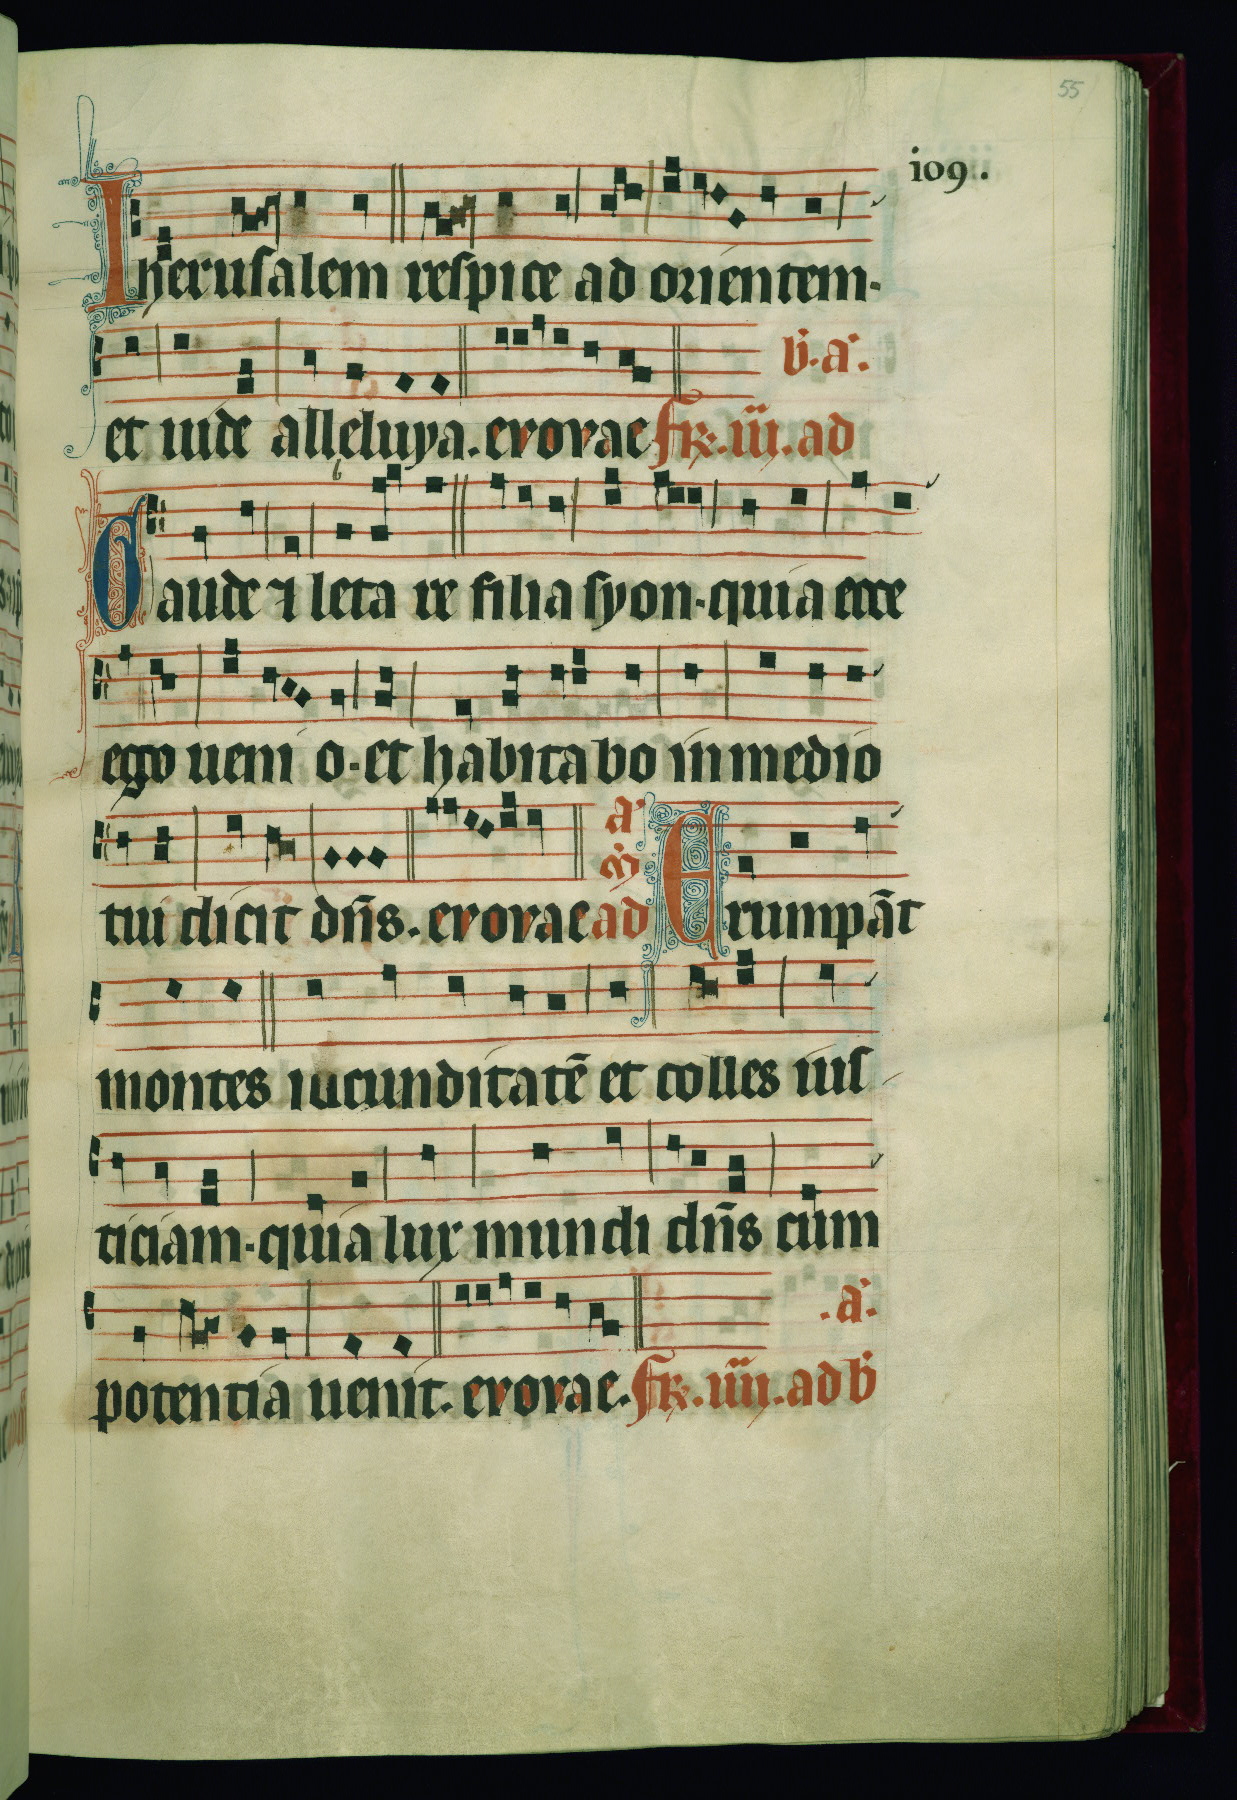 55
109.
Iherusalem respice ad orientem.
b̄. a̅.
et uide alleluya. evovae Fr̄. iii. ad
Gaude ⁊ leta re filia syon. quia ecce
ego ueni o. et habitabo in medio
a̅
tui dicit dn̄s. evovae ad Erumpāt
montes iucunditatē et colles ius
ticiam. quia lux mundi dn̄s cum
. a̅.
potentia uenit. evovae. Fr̄. iiii. ad b̄